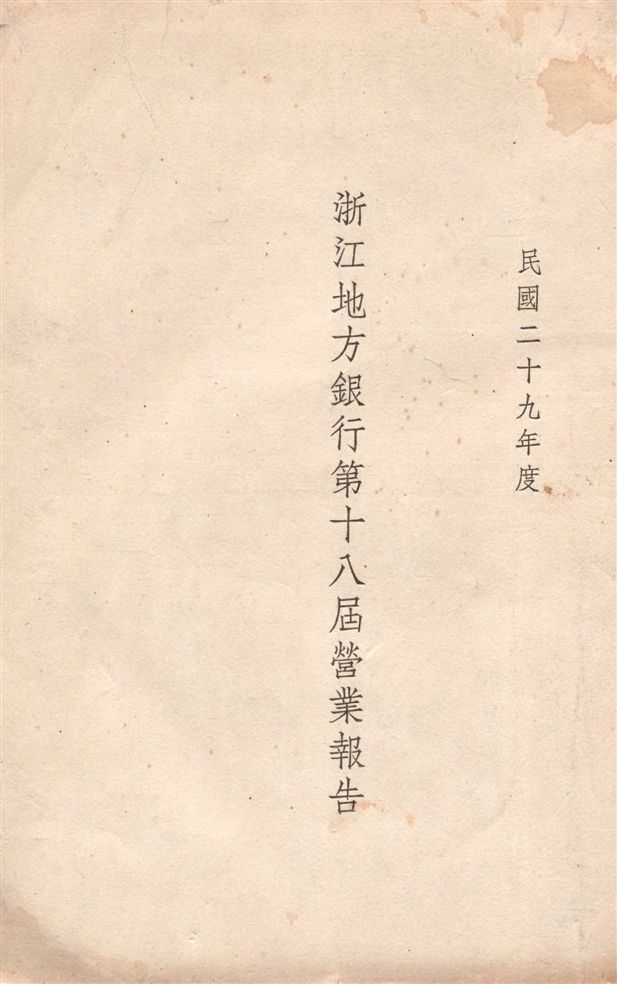 民國二十九年度
浙江地方銀行第十八屆營業報告